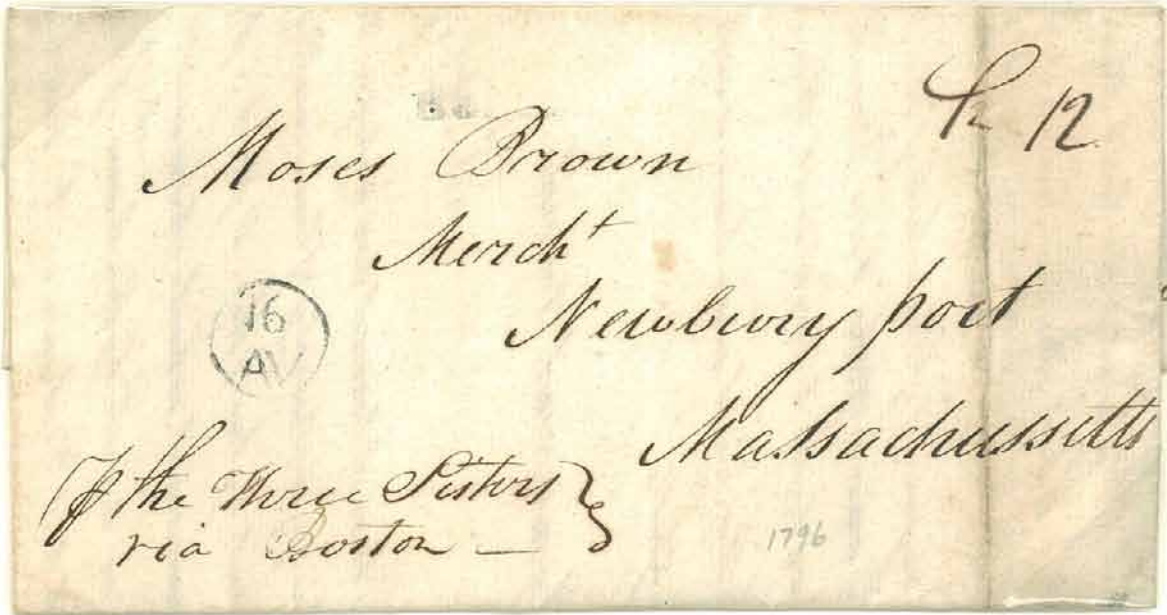 12
Moses Brown
Mercht
16
AV
Newbury port
Massachussetts
the Three Sisters
via Boston
1796